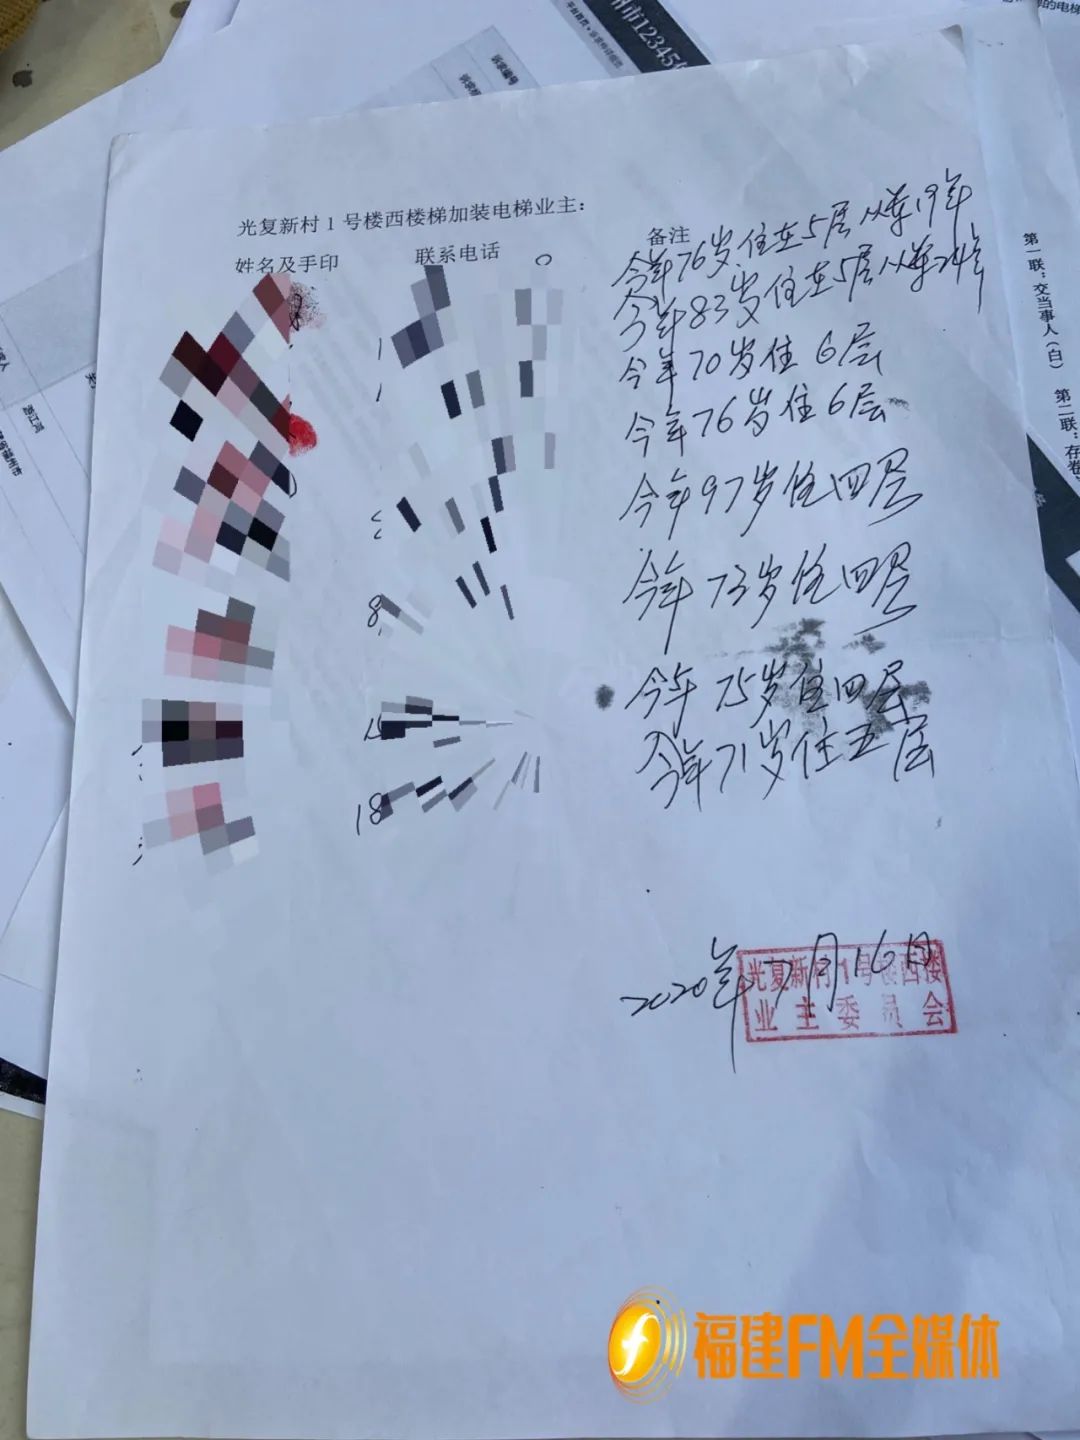 州市12345
诉求编号
光复新村1号楼西楼梯加装电梯业主：
姓名及手印 联系电话 备注
今年76岁住在5层从军19年
今年83岁住在5层从军24年
今年70岁住 6层
今年76岁住6层
今年97岁住四层
今年73岁住四层
今年75岁住四层
今年71岁住五层
8
18
2020年7月16日
光复新村1号楼西楼
业主委员会
第一联：交当事人（白） 第二联：存卷
福建FM全媒体